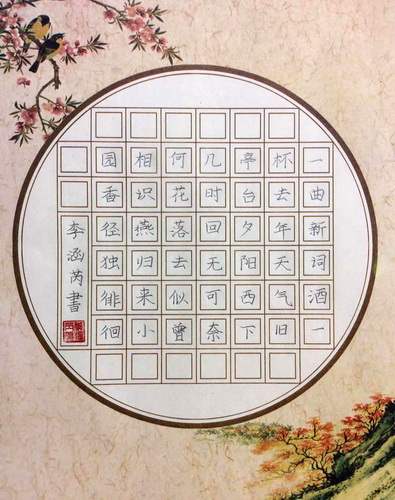 一曲新词酒一
杯去年天气旧
亭台夕阳西下
几时回无可奈
何花落去似曾
相识燕归来小
园香径独徘徊
李涵芮書